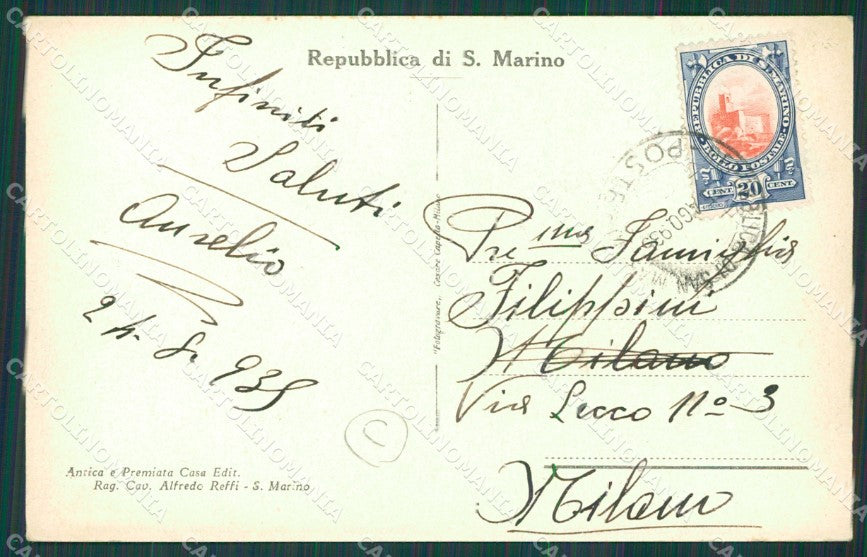 Repubblica di S. Marino
Infiniti
Saluti
Aurelio
24. 8. 935
Antica e Premiata Casa Edit.
Rag. Cav. Alfredo Reffi - S. Marino
"Fotogravure" Cesare Capello-Milano
REPUBBLICA DI S. MARINO
BOLLO POSTALE
CENT 20 CENT
POSTE
AGO 93
DI SAN MA
Pre.ma Famiglia
Filippini
Milano
Via Lecco No 3
Milano
CARTOLINOMANIA